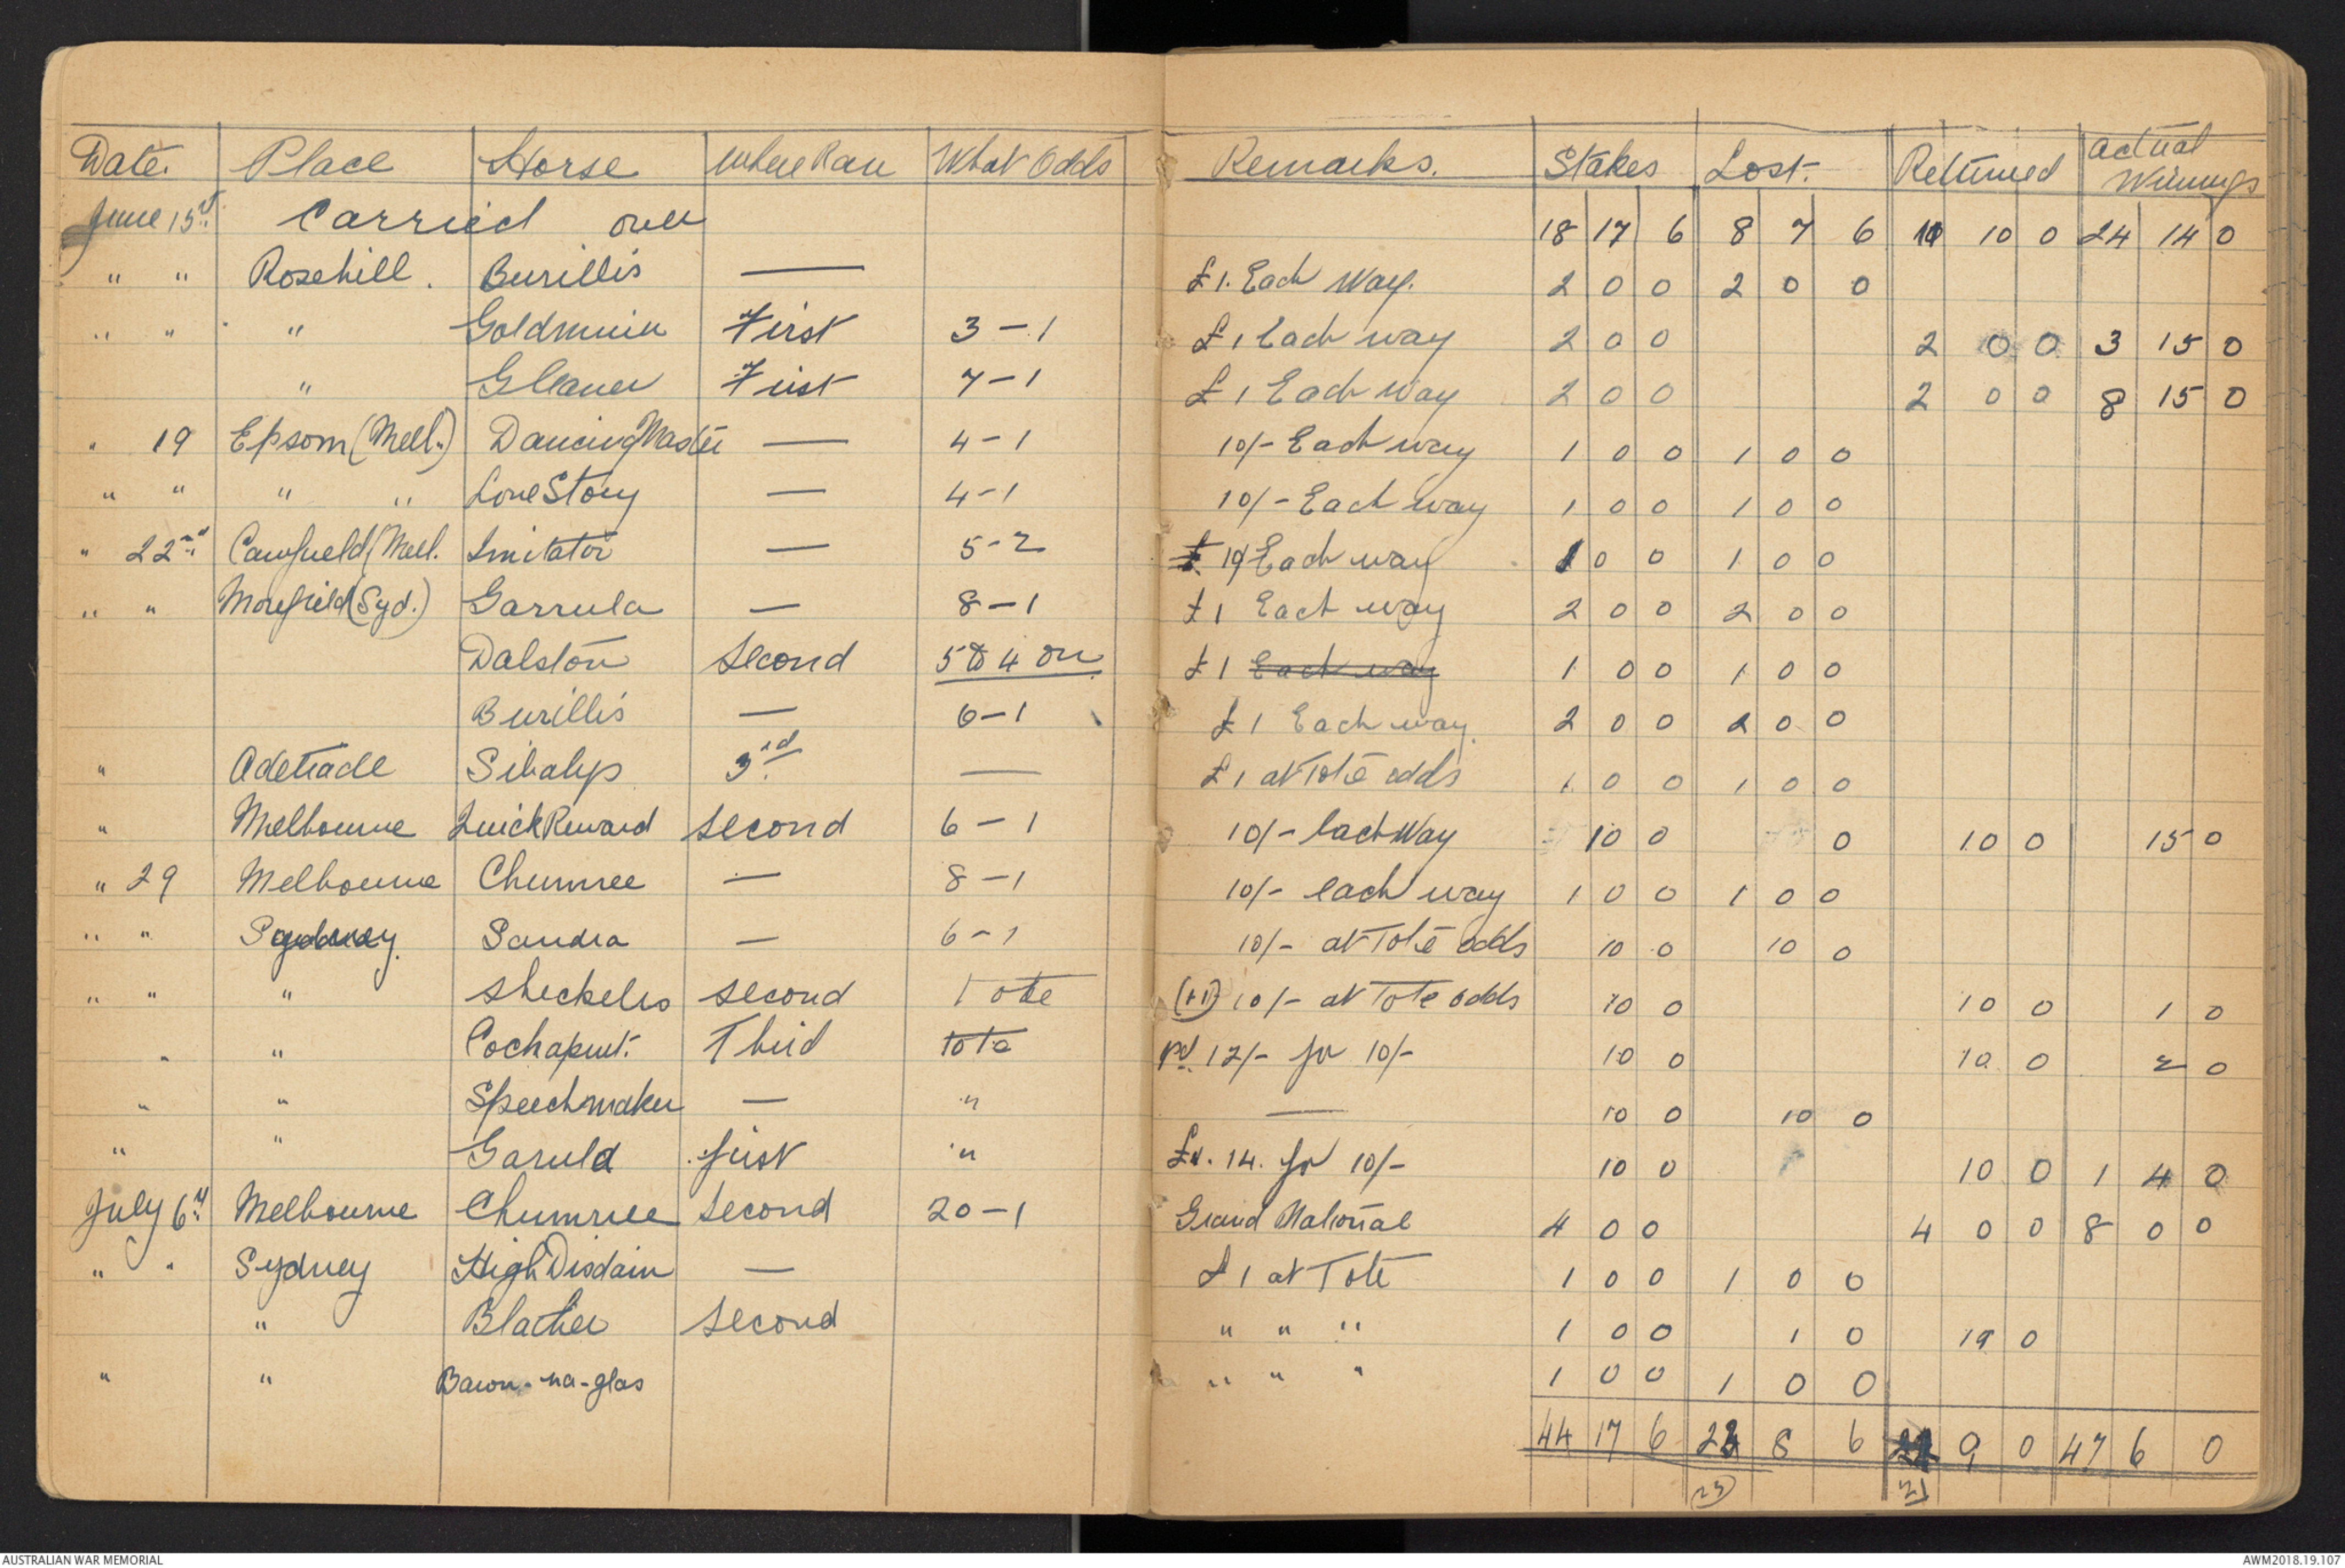 Date. Place Horse Where Ran What Odds Remarks. Stakes Lost. Returned Actual Winnings
June 15th Carried over 18 17 6 8 7 6 10 10 0 24 14 0
" " Rosehill. Burillis — £1. Each Way. 2 0 0 2 0 0
" " " Goldminer First 3-1 £1 Each way 2 0 0 2 0 0 3 15 0
" Gleaner First 7-1 £1 Each Way 2 0 0 2 0 0 8 15 0
" 19 Epsom (Mell.) Dancing Master — 4-1 10/- Each way 1 0 0 1 0 0
" " " " Love Story — 4-1 10/- Each way 1 0 0 1 0 0
" 22nd Caufield (Mell. Imitator — 5-2 10/ Each way 1 0 0 1 0 0
" " Morefield (Syd.) Garrula — 8-1 £1 Each way 2 0 0 2 0 0
Dalston Second 5 to 4 on £1 Each way 1 0 0 1 0 0
Burillis — 6-1 £1 Each way. 2 0 0 2 0 0
" Adelaide 3rd — £1 at Tote odds 1 0 0 1 0 0
" Melbourne Quick Reward Second 6-1 10/- Each Way 10 0 0 10 0 15 0
" 29 Melbourne Chumree — 8-1 10/- each way 1 0 0 1 0 0
" " Sydney. Sandra — 6-1 10/- at Tote odds 10 0 10 0
" " " Sheckeles Second Tote (11/) 10/- at Tote odds 10 0 10 0 1 0
" " Third Tote pd. 12/- for 10/- 10 0 10 0 2 0
" " Speechmaker — " — 10 0 10 0
" " Garuld first " £1. 14. for 10/- 10 0 10 0 1 4 0
July 6th Melbourne Chumree Second 20-1 Grand National 4 0 0 4 0 0 8 0 0
" " Sydney High Disdain — £1 at Tote 1 0 0 1 0 0
" Second " " " 1 0 0 1 0 19 0
" " Baron-na-glas " " " 1 0 0 1 0 0
44 17 6 23 8 6 21 9 0 47 6 0
(23) 21
AUSTRALIAN WAR MEMORIAL AWM2018.19.107